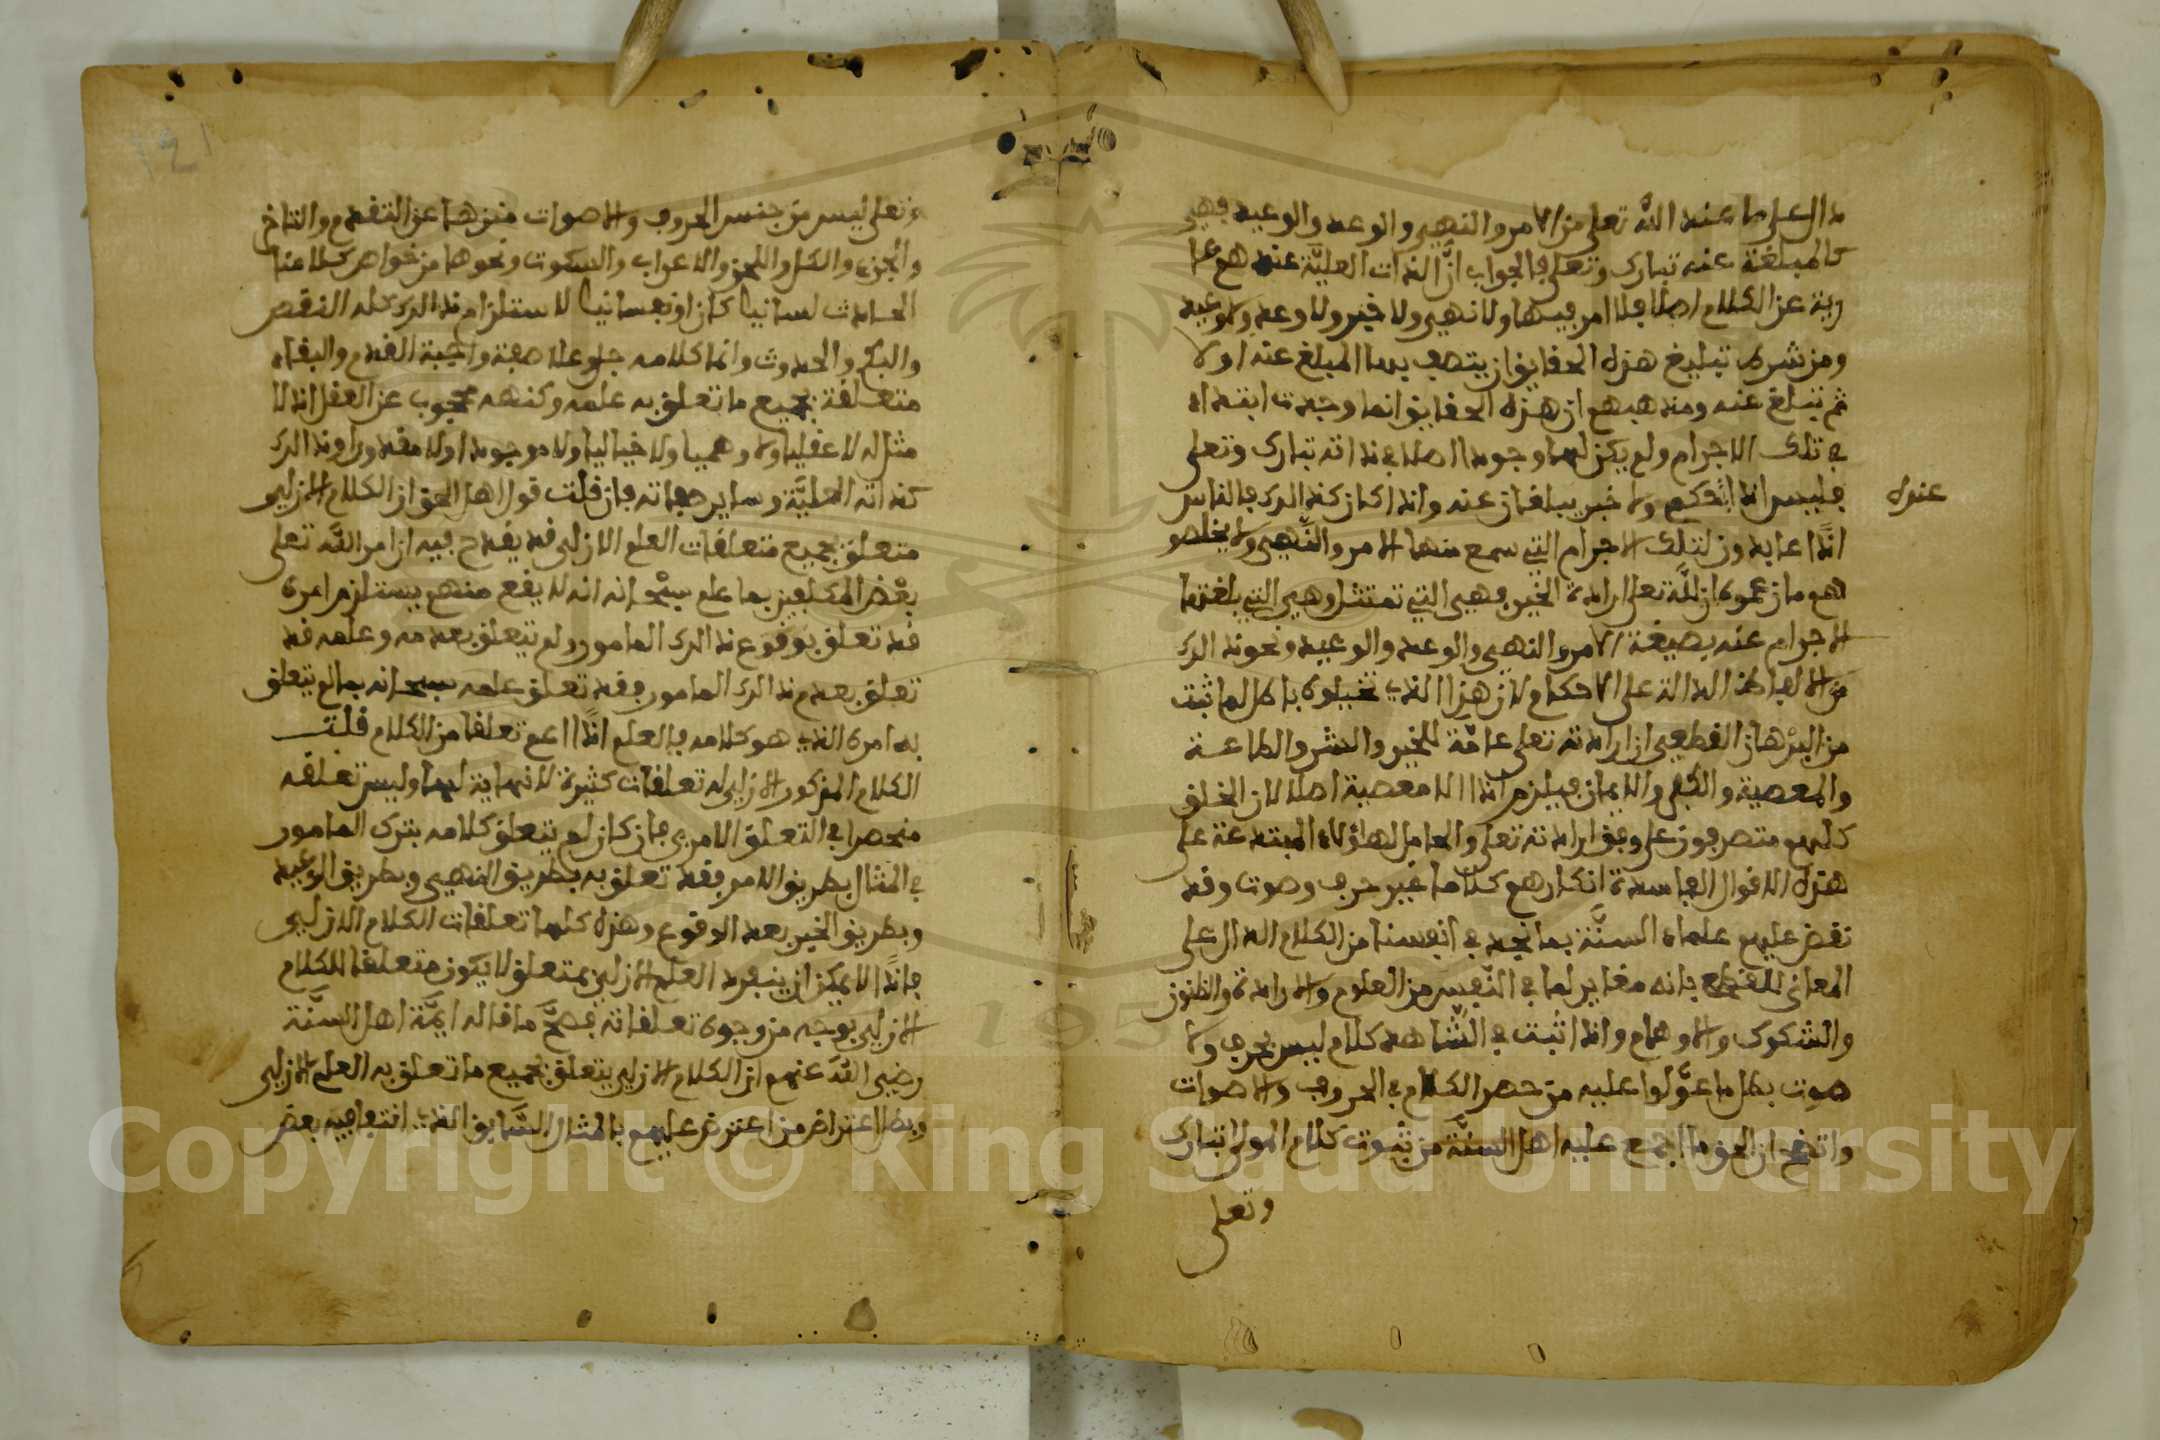 دال على ما عند الله تعلى من الامر والنهي والوعد والوعيد فهي
كالمبلغة عنه تبارك وتعلى فالجواب أنَّ الذات العليَّة عندهم عا
رية عن الكلام اصلا فلا امر فيها ولا نهي ولا خبر ولا وعد ولا وعيد
ومن شرط تبليغ هذه الحقايق ان يتصف بها المبلغ عنه اولا
ثم تبلغ عنه ومذهبهم ان هذه الحقايق انما وجدت ابتداء
في تلك الاجرام ولم يكن لها وجود اصلا في ذاته تبارك وتعلى
فليس اذا لحكم ولا خبر يبلغان عنه واذا كان كذالك فالناس
عنده
اذًا عابدون لتلك الاجرام التي سمع منها الامر والنَّهي ولا يخلصو
هم ما زعموه ان لله تعلى ارادة الخير فهي التي تمتثل وهي التي بلغتها
الاجرام عنه بصيغة الامر والنهي والوعد والوعيد ونحو ذالك
من الالفاظ الدالة على الاحكام لان هذا الذي تخيلوه باطل لما ثبت
من البرهان القطعي ان ارادته تعلى عامَّة للخير والشر والطاعة
والمعصية والكفر والايمان فيلزم اذا الا معصية اصلا لان الخلق
كلهم متصرفون على وفق ارادته تعلى والحامل لهاؤلاء المبتدعة على
هذه الاقوال الفاسدة انكارهم كلاما غير حرف وصوت وقد
نقض عليهم علماء السنَّة بما نجد في انفسنا من الكلام الدال على
المعاني للقطع بانه مغاير لما في النَّفس من العلوم والارادة والظنون
والشكوك والاوهام واذا ثبت في الشَّاهد كلام ليس بحرف ولا
صوت بطل ما عوَّلوا عليه من حصر الكلام في الحروف والاصوات
واتضح ان الحق ما اجمع عليه اهل السنَّة من ثبوت كلام المولى تبارك
وتعلى
وتعلى ليس من جنس الحروف والاصوات منزها عن التقدم والتاخر
والجزء والكل واللحن والاعراب والسكوت ونحوها من خواص كلامنا
الحادث لسانيا كان او نفسانيا لاستلزام ذالك كله النقص
والبكم والحدوث وانما كلامه جل وعلا صفة واجبة القدم والبقاء
متعلقة بجميع ما تعلق به علمه وكنهه محجوب عن العقل اذ لا
مثل له لا عقليا ولا وهميا ولا خياليا ولا موجودا ولا مقدورا وذالك
كذاته العليَّة وساير صفاته فان قلت قول اهل الحق ان الكلام الازلي
متعلق بجميع متعلقات العلم الازلي قد يقدح فيه ان امر الله تعلى
بعْض المكلفين بما علم سبحْانه انه لا يقع منهم يستلزم امره
قد تعلق بوقوع ذالك المامور ولم يتعلق بعدمه وعلمه قد
تعلق بعدم ذالك المامور فقد تعلق علمه سبحانه بما لم يتعلق
به امره الذي هو كلامه فالعلم اذًا اعم تعلقا من الكلام قلت
الكلام المذكور الازلي له تعلقات كثيرة لا نهاية لها وليس تعلقه
منحصرا في التعلق الامري فان كان لم يتعلق كلامه بترك المامور
في المثال بطريق الامر فقد تعلق به بطريق النهي وبطريق الوعيد
وبطريق الخبر بعدم الوقوع وهذه كلها تعلقات الكلام الازلي
فاذًا لا يمكن ان ينفرد العلم الازلي بمتعلق لا يكون متعلقا للكلام
الازلي بوجه من وجوه تعلقاته فصحَّ ما قاله ايمَّة اهل السنَّة
رضي الله عنهم ان الكلام الازلي يتعلق بجميع ما تعلق به العلم الازلي
وبطل اعتراض من اعترض عليهم بالمثال السَّابق الذي انتفا فيه بعض
Copyright © King Saud University